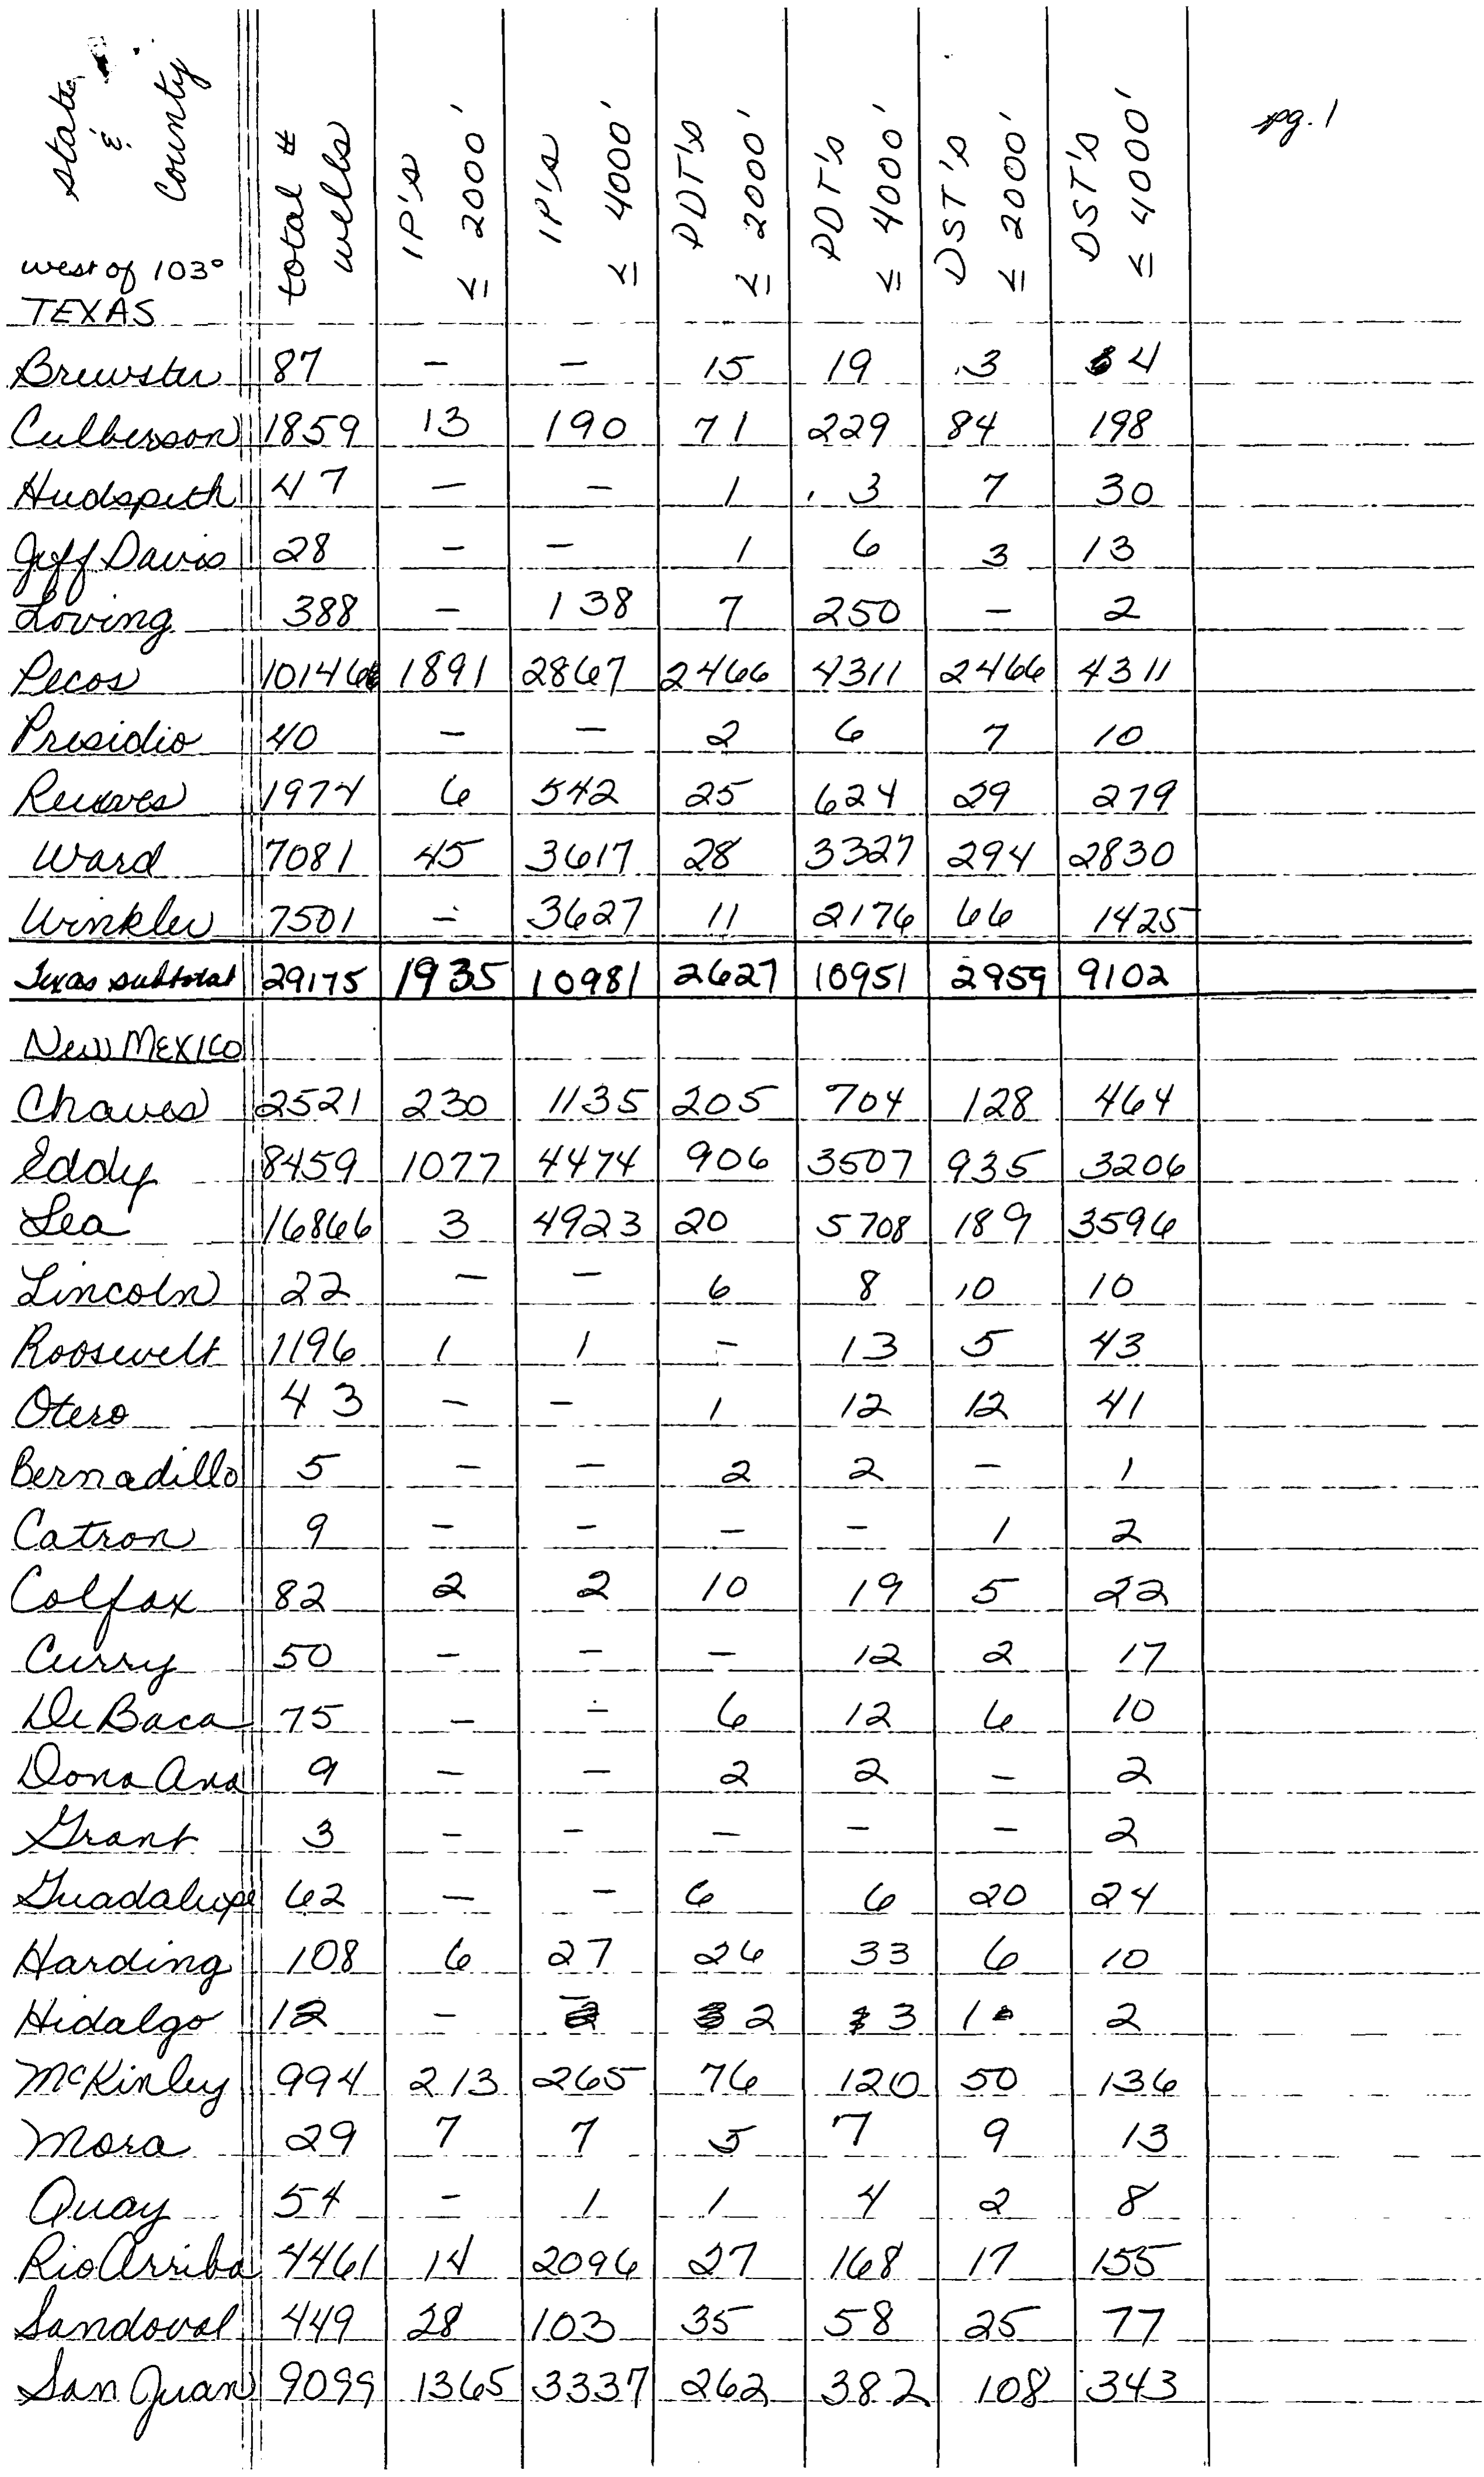 State & County total # wells IP's ≤ 2000' IP's ≤ 4000' PDT's ≤ 2000' PDT's ≤ 4000' DST's ≤ 2000' DST's ≤ 4000' pg. 1
west of 103°
TEXAS
Brewster 87 – – 15 19 3 4
Culberson 1859 13 190 71 229 84 198
Hudspeth 47 – – 1 3 7 30
Jeff Davis 28 – – 1 6 3 13
Loving 388 – 138 7 250 – 2
Pecos 10146 1891 2867 2466 4311 2466 4311
Presidio 40 – – 2 6 7 10
Reeves 1974 6 542 25 624 29 279
Ward 7081 45 3617 28 3327 294 2830
Winkler 7501 – 3627 11 2176 66 1425
Texas subtotal 29175 1935 10981 2627 10951 2959 9102
New MEXICO
Chaves 2521 230 1135 205 704 128 464
Eddy 8459 1077 4474 906 3507 935 3206
Lea 16866 3 4923 20 5708 189 3596
Lincoln 22 – – 6 8 10 10
Roosevelt 1196 1 1 – 13 5 43
Otero 43 – – 1 12 12 41
Bernadillo 5 – – 2 2 – 1
Catron 9 – – – – 1 2
Colfax 82 2 2 10 19 5 22
Curry 50 – – – 12 2 17
De Baca 75 – – 6 12 6 10
Dona Ana 9 – – 2 2 – 2
Grant 3 – – – – – 2
Guadalupe 62 – – 6 6 20 24
Harding 108 6 27 26 33 6 10
Hidalgo 12 – – 2 3 1 2
McKinley 994 213 265 76 120 50 136
Mora 29 7 7 5 7 9 13
Quay 54 – 1 1 4 2 8
Rio Arriba 4461 14 2096 27 168 17 155
Sandoval 449 28 103 35 58 25 77
San Juan 9099 1365 3337 262 382 108 343